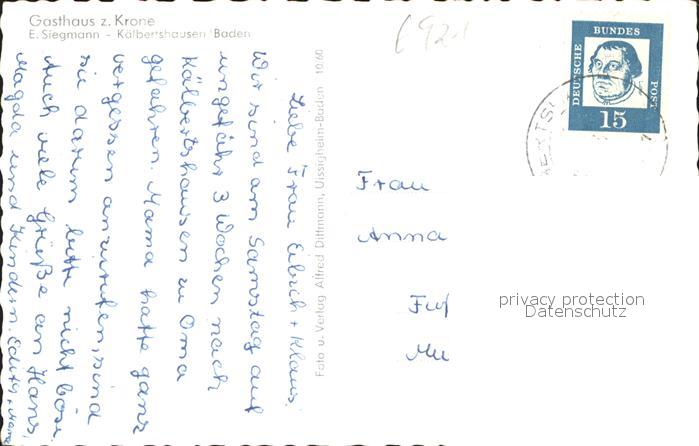 Gasthaus z. Krone
E. Siegmann - Kälbertshausen Baden
Liebe Frau + Klaus!
Wir sind am Samstag auf
ungefähr 3 Wochen nach
Kälbertshausen zu Oma
gefahren. Mama hatte ganz
vergessen anzurufen, sind
sie darum bitte nicht böse.
Auch viele Grüße an Hans,
Magda und Kindern Edith +
Foto u. Verlag Alfred Dittmann, Uissigheim-Baden 10/60
DEUTSCHE
BUNDES
POST
15
Frau
Anna
privacy protection
Datenschutz